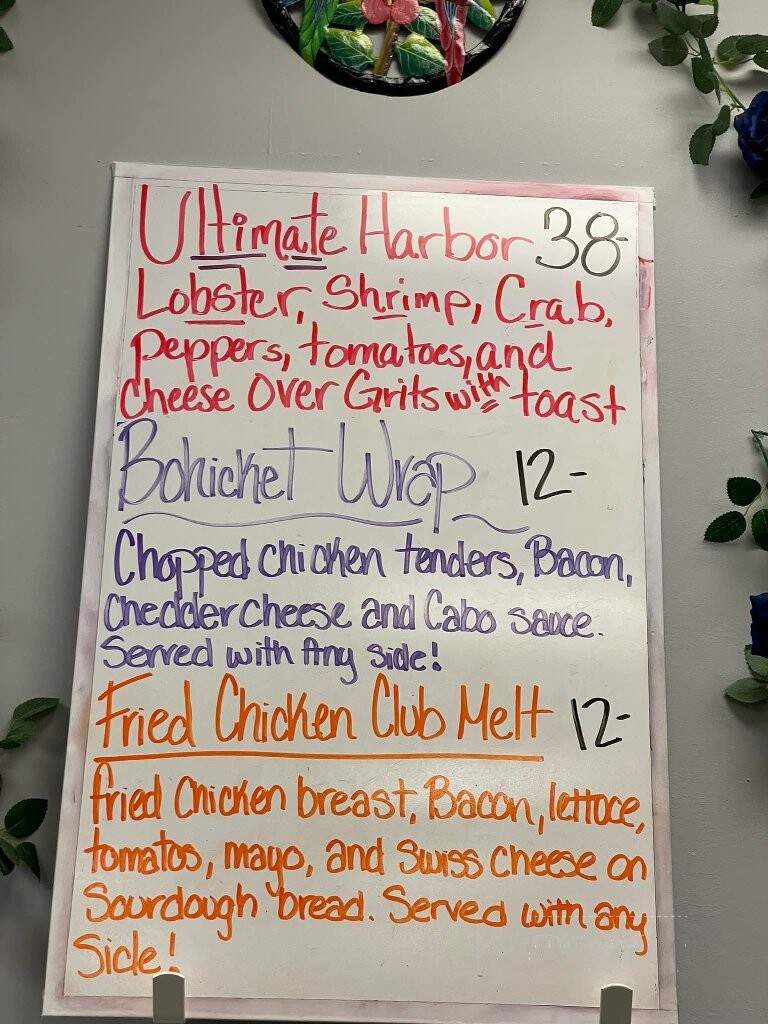 Ultimate Harbor 38-
Lobster, Shrimp, Crab,
Peppers, tomatoes, and
Cheese Over Grits with toast
Bohicket Wrap 12-
Chopped chicken tenders, Bacon,
Chedder cheese and Cabo sauce.
Served with Any Side!
Fried Chicken Club Melt 12-
Fried Chicken breast, Bacon, lettuce,
tomatos, mayo, and Swiss Cheese on
Sourdough bread. Served with any
Side!